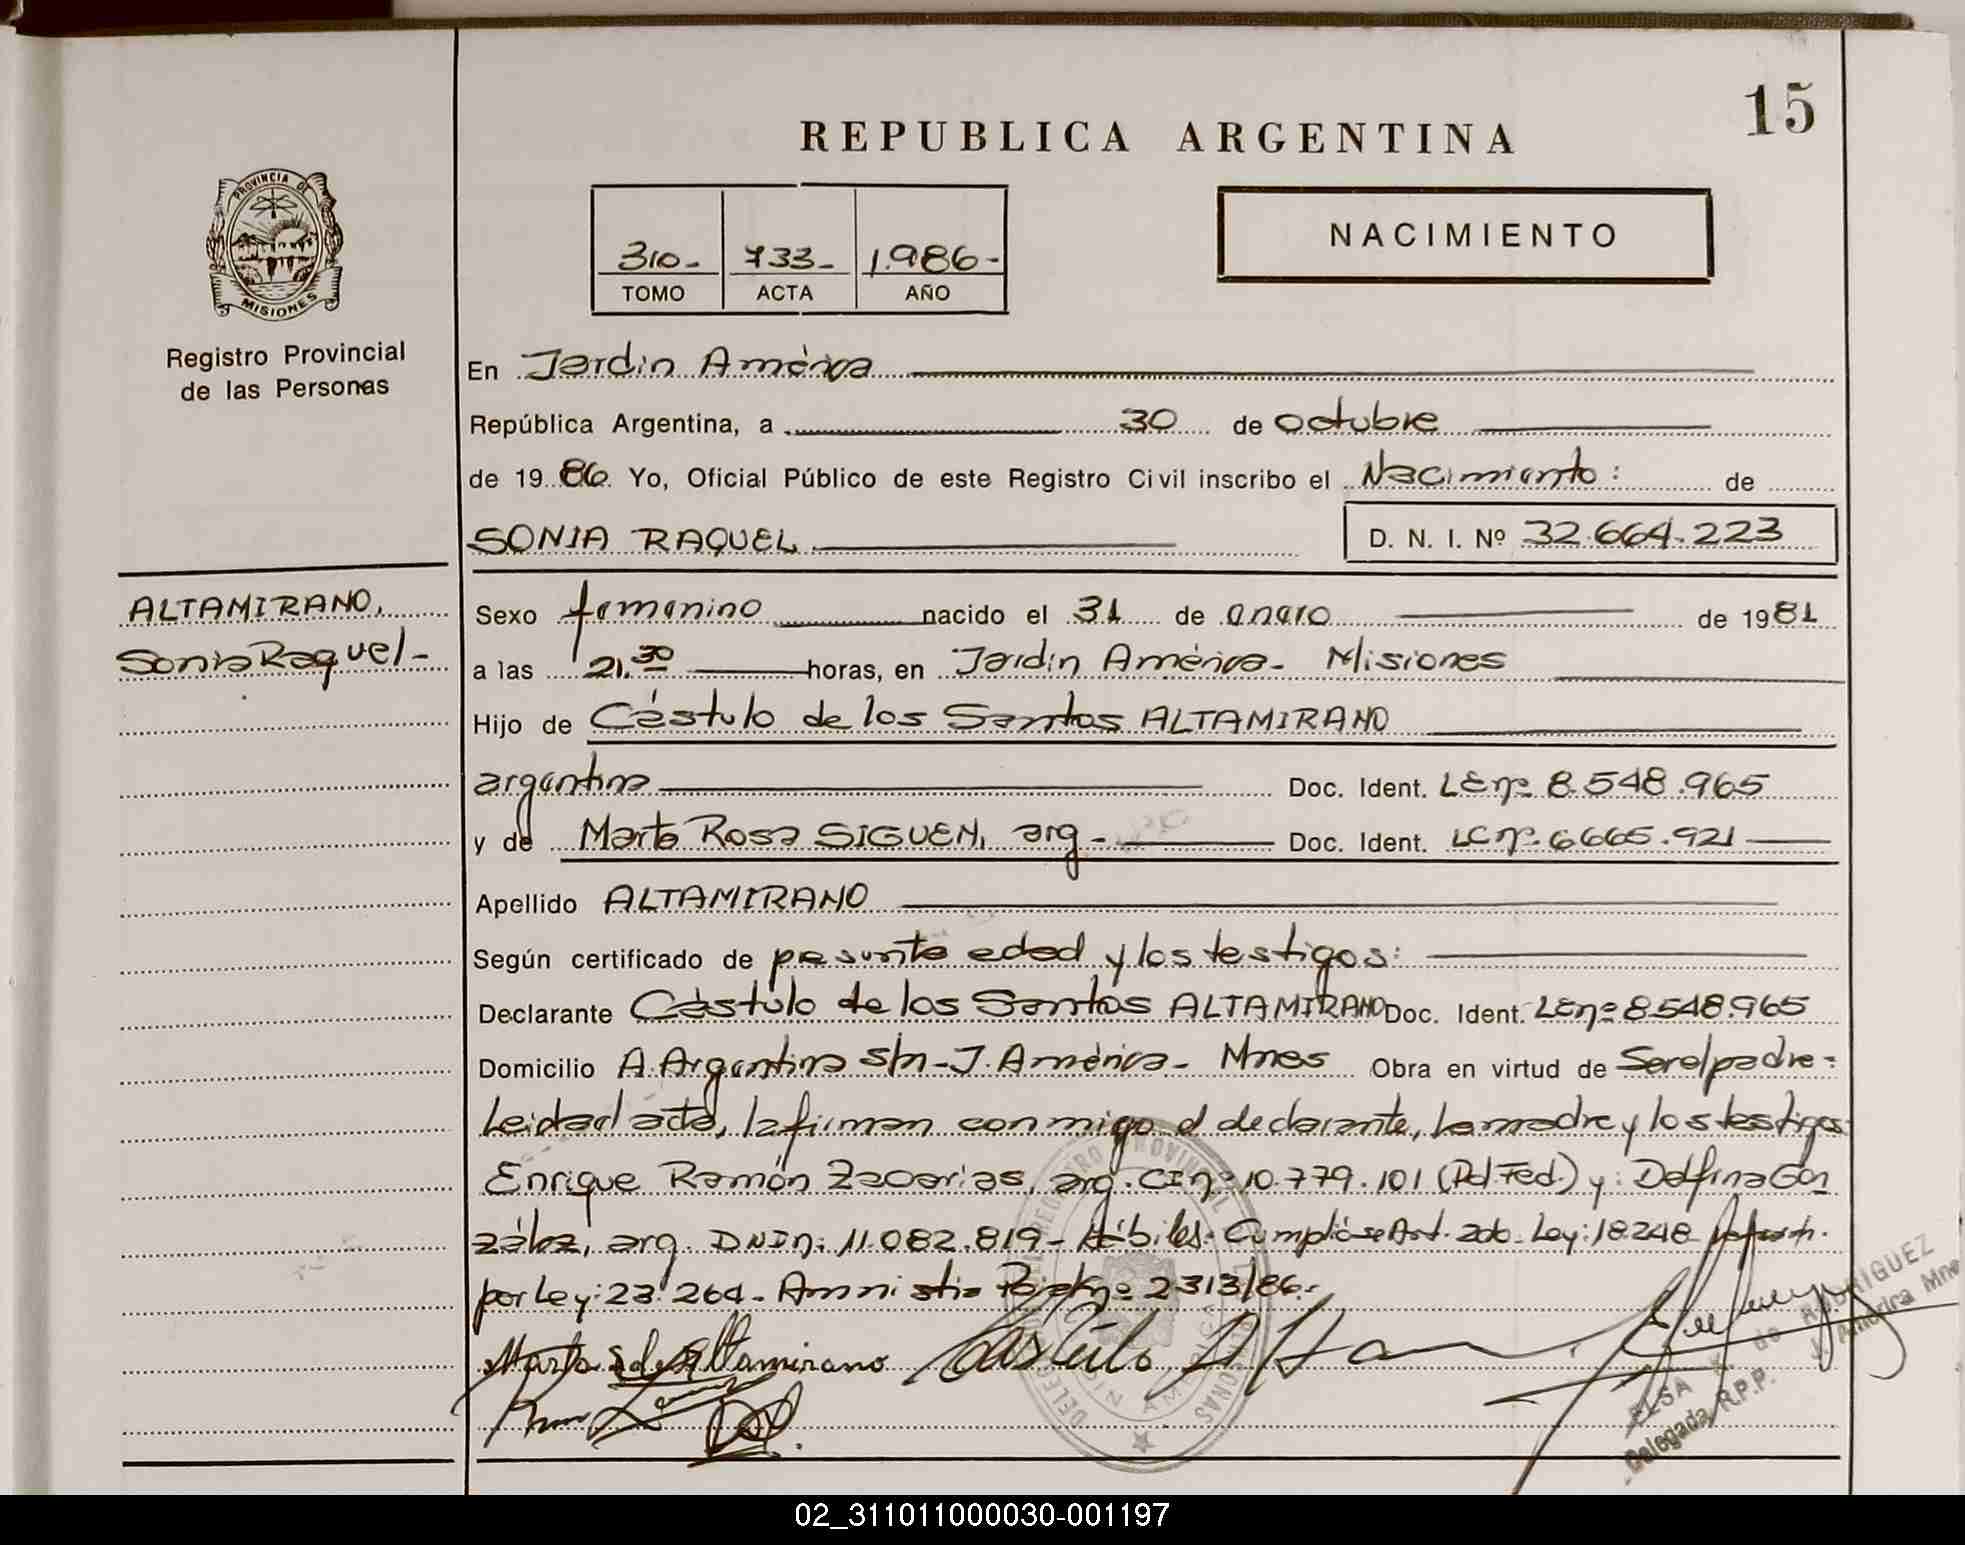 15
REPUBLICA ARGENTINA
PROVINCIA DE
MISIONES
Registro Provincial
de las Personas
310- 733- 1.986-
TOMO ACTA AÑO
NACIMIENTO
En Jardin América
República Argentina, a 30 de octubre
de 19 86 Yo, Oficial Público de este Registro Civil inscribo el Nacimiento: de
SONIA RAQUEL D. N. I. Nº 32.664.223
ALTAMIRANO,
Sonia Raquel-
Sexo femenino nacido el 31 de enero de 1981
a las 21.30 horas, en Jardin América- Misiones
Hijo de Cástulo de los Santos ALTAMIRANO
argentino Doc. Ident. LE nº 8.548.965
y de Marta Rosa SIGUEN, arg- Doc. Ident. LC nº 6.665.921
Apellido ALTAMIRANO
Según certificado de presunta edad y los testigos:
Declarante Cástulo de los Santos ALTAMIRANO Doc. Ident. LE nº 8.548.965
Domicilio A. Argentina s/n-J. América- Mnes Obra en virtud de Ser el padre=
Leida el acta, la firman conmigo el declarante, la madre y los testigos
Enrique Ramón Zacarias, arg. CI nº 10.779.101 (Pol Fed.) y: Delfina Gon
zález, arg. DNI n: 11.082.819- Hábiles. Cumplióse Art. 2do Ley: 18.248
por Ley: 23.264- Amnistia nº 2313/86.-
Marta S de Altamirano Castulo
ELSA de RODRIGUEZ
Delegada R.P.P. J. América Mnes
02_311011000030-001197